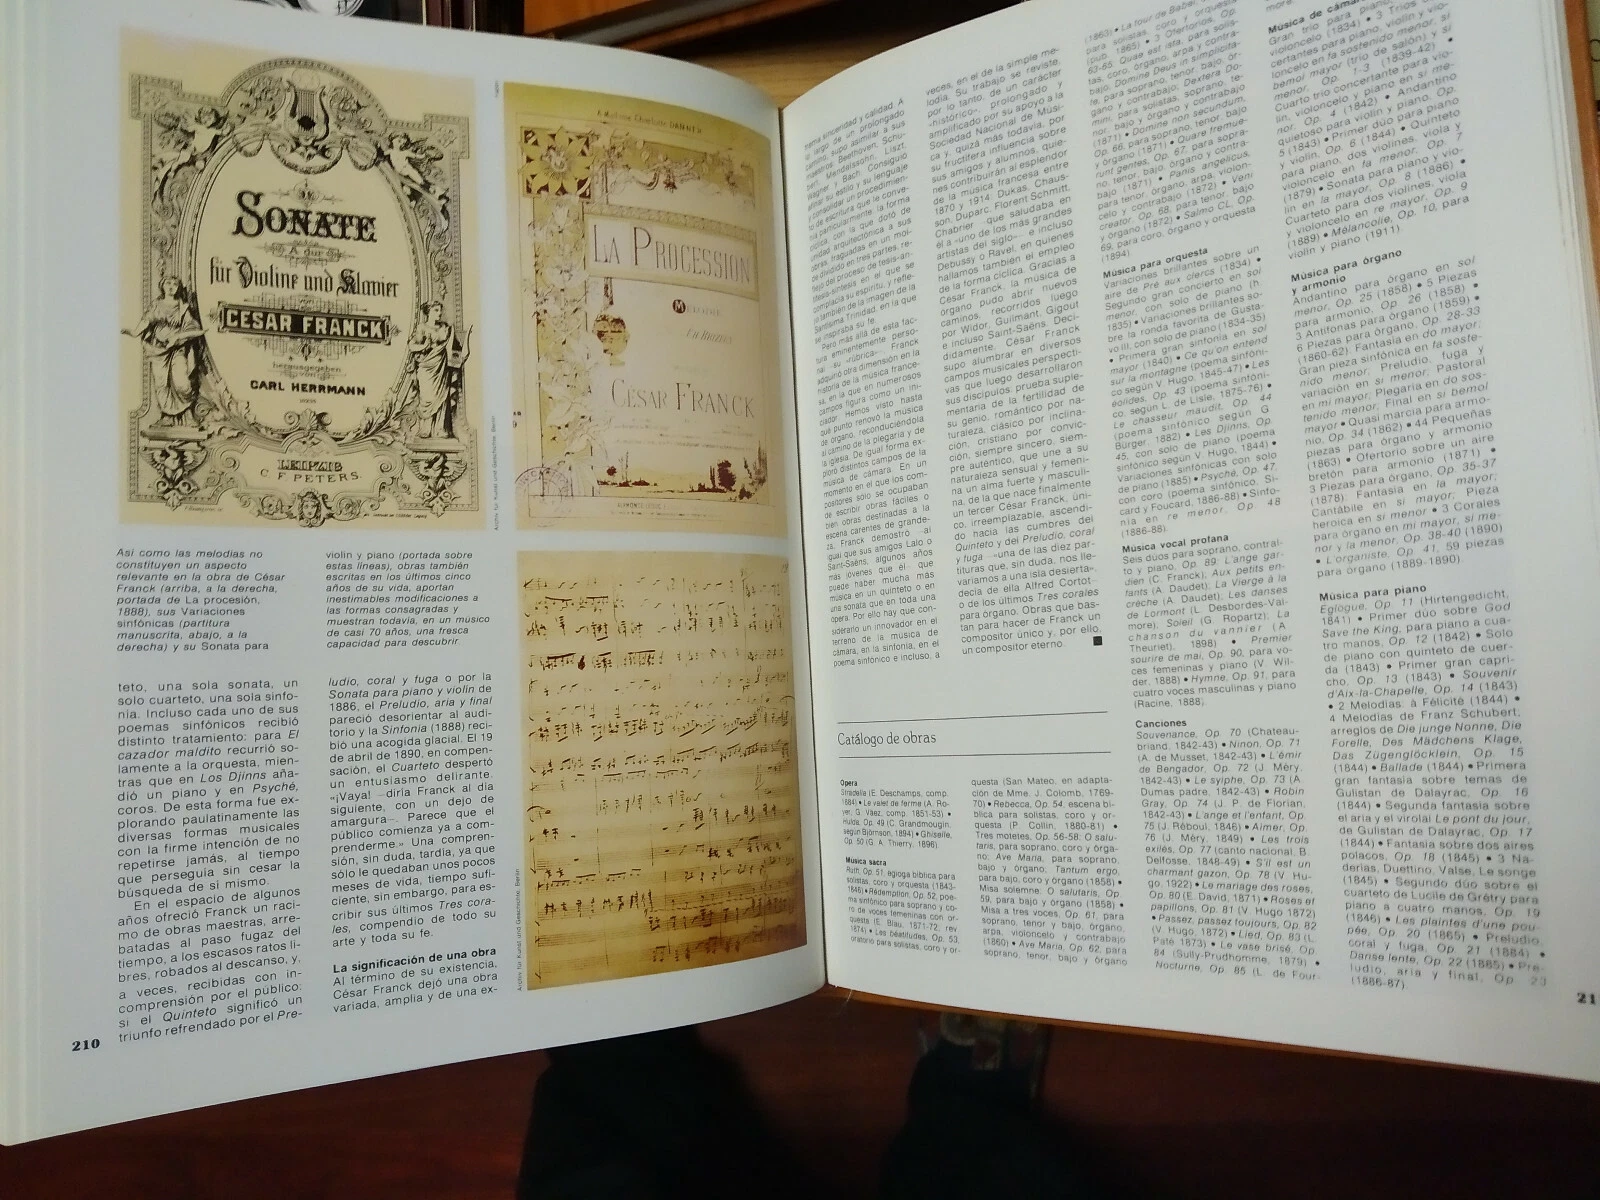 SONATE
A dur
für Violine und Klavier
CÉSAR FRANCK
herausgegeben
von
CARL HERRMANN
LEIPZIG
C. F. PETERS.
Archiv für Kunst und Geschichte. Berlín
LA PROCESSION
MÉLODIE
CÉSAR FRANCK
Archiv für Kunst und Geschichte. Berlín
Así como las melodías no
constituyen un aspecto
relevante en la obra de César
Franck (arriba, a la derecha,
portada de La procesión,
1888), sus Variaciones
sinfónicas (partitura
manuscrita, abajo, a la
derecha) y su Sonata para
violín y piano (portada sobre
estas líneas), obras también
escritas en los últimos cinco
años de su vida, aportan
inestimables modificaciones a
las formas consagradas y
muestran todavía, en un músico
de casi 70 años, una fresca
capacidad para descubrir.
teto, una sola sonata, un
solo cuarteto, una sola sinfo-
nía. Incluso cada uno de sus
poemas sinfónicos recibió
distinto tratamiento: para El
cazador maldito recurrió so-
lamente a la orquesta, mien-
tras que en Los Djinns aña-
dió un piano y en Psyché,
coros. De esta forma fue ex-
plorando paulatinamente las
diversas formas musicales
con la firme intención de no
repetirse jamás, al tiempo
que perseguía sin cesar la
búsqueda de sí mismo.
En el espacio de algunos
años ofreció Franck un raci-
mo de obras maestras, arre-
batadas al paso fugaz del
tiempo, a los escasos ratos li-
bres, robados al descanso, y,
a veces, recibidas con in-
comprensión por el público:
si el Quinteto significó un
triunfo refrendado por el Pre-
ludio, coral y fuga o por la
Sonata para piano y violín de
1886, el Preludio, aria y final
pareció desorientar al audi-
torio y la Sinfonía (1888) reci-
bió una acogida glacial. El 19
de abril de 1890, en compen-
sación, el Cuarteto despertó
un entusiasmo delirante.
«¡Vaya! –diría Franck al día
siguiente, con un dejo de
amargura–. Parece que el
público comienza ya a com-
prenderme.» Una compren-
sión, sin duda, tardía, ya que
sólo le quedaban unos pocos
meses de vida, tiempo sufi-
ciente, sin embargo, para es-
cribir sus últimos Tres cora-
les, compendio de todo su
arte y toda su fe.
La significación de una obra
Al término de su existencia,
César Franck dejó una obra
variada, amplia y de una ex-
210
trema sinceridad y calidad. A
lo largo de un prolongado
camino, supo asimilar a sus
ancestros: Beethoven, Schu-
bert, Mendelssohn, Liszt,
Wagner y Bach. Consiguió
afinar su estilo y su lenguaje
y consolidar un procedimien-
to de escritura que le conve-
nía particularmente: la forma
cíclica, con la que dotó de
unidad arquitectónica a sus
obras, fraguadas en un mol-
de dividido en tres partes, re-
flejo del proceso de tesis-an-
títesis-síntesis en el que se
complacía su espíritu, y refle-
jo también de la imagen de la
Santísima Trinidad, en la que
se inspiraba su fe.
Pero más allá de esta fac-
tura eminentemente perso-
nal –su rúbrica–, Franck
adquirió otra dimensión en la
historia de la música france-
sa, en la que en numerosos
campos figura como un ini-
ciador. Hemos visto hasta
qué punto renovó la música
de órgano, reconduciéndola
al camino de la plegaria y de
la iglesia. De igual forma ex-
ploró distintos campos de la
música de cámara. En un
momento en el que los com-
positores sólo se ocupaban
de escribir obras fáciles o
bien obras destinadas a la
escena carentes de grande-
za, Franck demostró –al
igual que sus amigos Lalo o
Saint-Saëns, algunos años
más jóvenes que él– que
puede haber mucha más
música en un quinteto o en
una sonata que en toda una
ópera. Por ello hay que con-
siderarlo un innovador en el
terreno de la música de
cámara, en la sinfonía, en el
poema sinfónico e incluso, a
veces, en el de la simple me-
lodía. Su trabajo se reviste,
por lo tanto, de un carácter
«histórico», prolongado y
amplificado por su apoyo a la
Sociedad Nacional de Músi-
ca y, quizá más todavía, por
su fructífera influencia sobre
sus amigos y alumnos, quie-
nes contribuirán al esplendor
de la música francesa entre
1870 y 1914: Dukas, Chaus-
son, Duparc, Florent Schmitt,
Chabrier –que saludaba en
él a «uno de los más grandes
artistas del siglo»– e incluso
Debussy o Ravel, en quienes
hallamos también el empleo
de la forma cíclica. Gracias a
César Franck, la música de
órgano pudo abrir nuevos
caminos, recorridos luego
por Widor, Guilmant, Gigout
e incluso Saint-Saëns. Deci-
didamente, César Franck
supo alumbrar en diversos
campos musicales perspecti-
vas que luego desarrollaron
sus discípulos, prueba suple-
mentaria de la fertilidad de
su genio, romántico por na-
turaleza, clásico por inclina-
ción, cristiano por convic-
ción, siempre sincero, siem-
pre auténtico, que une a su
naturaleza sensual y femeni-
na un alma fuerte y masculi-
na, de la que nace finalmente
un tercer César Franck, úni-
co, irreemplazable, ascendi-
do hacia las cumbres del
Quinteto y del Preludio, coral
y fuga –«una de las diez par-
tituras que, sin duda, nos lle-
varíamos a una isla desierta»,
decía de ella Alfred Cortot–
o de los últimos Tres corales
para órgano. Obras que bas-
tan para hacer de Franck un
compositor único y, por ello,
un compositor eterno. ■
Catálogo de obras
Opera
Stradella (E. Deschamps, comp.
1884) • Le valet de ferme (A. Ro-
yer, G. Vaëz, comp. 1851-53) •
Hulda, Op. 49 (C. Grandmougin,
según Björnson, 1894) • Ghiselle,
Op. 50 (G. A. Thierry, 1896).
Música sacra
Ruth, Op. 51, égloga bíblica para
solistas, coro y orquesta (1843-
1846) • Rédemption, Op. 52, poe-
ma sinfónico para soprano y co-
ro de voces femeninas con or-
questa (E. Blau, 1871-72, rev
1874) • Les béatitudes, Op. 53,
oratorio para solistas, coro y or-
questa (San Mateo, en adapta-
ción de Mme. J. Colomb, 1769-
70) • Rebecca, Op. 54, escena bí-
blica para solistas, coro y or-
questa (P. Collin, 1880-81) •
Tres motetes, Op. 56-58: O salu-
taris, para soprano, coro y órga-
no; Ave Maria, para soprano,
bajo y órgano; Tantum ergo,
para bajo, coro y órgano (1858) •
Misa solemne. O salutaris, Op.
59, para bajo y órgano (1858) •
Misa a tres voces, Op. 61, para
soprano, tenor, bajo, órgano,
arpa, violoncelo y contrabajo
(1860) • Ave Maria, Op. 62, para
soprano, tenor, bajo y órgano
(1863) • La tour de Babel,
para solistas, coro y orquesta
(pub. 1865) • 3 Ofertorios, Op.
63-65: Quae est ista, para solis-
tas, coro, órgano, arpa y contra-
bajo; Domine Deus in simplicita-
te, para soprano, tenor, bajo, ór-
gano y contrabajo; Dextera Do-
mini, para solistas, soprano, te-
nor, bajo y órgano y contrabajo
(1871) • Domine non secundum,
Op. 66, para soprano, tenor, bajo
y órgano (1871) • Quare fremue-
runt gentes, Op. 67, para sopra-
no, tenor, bajo, órgano y contra-
bajo (1871) • Panis angelicus,
para tenor, órgano, arpa, violon-
celo y contrabajo (1872) • Veni
creator, Op. 68, para tenor, bajo
y órgano (1872) • Salmo CL, Op.
69, para coro, órgano y orquesta
(1894).
Música para orquesta
Variaciones brillantes sobre un
aire de Pré aux clercs (1834) •
Segundo gran concierto en sol
menor, con solo de piano (h.
1835) • Variaciones brillantes so-
bre la ronda favorita de Gusta-
vo III, con solo de piano (1834-35)
• Primera gran sinfonía en sol
mayor (1840) • Ce qu'on entend
sur la montagne (poema sinfóni-
co según V. Hugo, 1845-47) • Les
éolides, Op. 43 (poema sinfóni-
co, según L. de Lisle, 1875-76) •
Le chasseur maudit, Op. 44
(poema sinfónico según G.
Bürger, 1882) • Les Djinns, Op.
45, con solo de piano (poema
sinfónico según V. Hugo, 1844) •
Variaciones sinfónicas con solo
de piano (1885) • Psyché, Op. 47,
con coro (poema sinfónico. Si-
card y Foucard, 1886-88) • Sinfo-
nía en re menor, Op. 48
(1886-88).
Música vocal profana
Seis dúos para soprano, contral-
to y piano, Op. 89: L'ange gar-
dien (C. Franck), Aux petits en-
fants (A. Daudet), La Vierge à la
crèche (A. Daudet), Les danses
de Lormont (L. Desbordes-Val-
more), Soleil (G. Ropartz), La
chanson du vannier (A.
Theuriet), 1898) • Premier
sourire de mai, Op. 90, para vo-
ces femeninas y piano (V. Wil-
der, 1888) • Hymne, Op. 91, para
cuatro voces masculinas y piano
(Racine, 1888).
Canciones
Souvenance, Op. 70 (Chateau-
briand, 1842-43) • Ninon, Op. 71
(A. de Musset, 1842-43) • L'émir
de Bengador, Op. 72 (J. Méry,
1842-43) • Le sylphe, Op. 73 (A.
Dumas padre, 1842-43) • Robin
Gray, Op. 74 (J. P. de Florian,
1842-43) • L'ange et l'enfant, Op.
75 (J. Réboul, 1846) • Aimer, Op.
76 (J. Méry, 1849) • Les trois
exilés, Op. 77 (canto nacional, B.
Delfosse, 1848-49) • S'il est un
charmant gazon, Op. 78 (V. Hu-
go, 1922) • Le mariage des roses,
Op. 80 (E. David, 1871) • Roses et
papillons, Op. 81 (V. Hugo 1872)
• Passez, passez toujours, Op. 82
(V. Hugo, 1872) • Lied, Op. 83 (L.
Paté 1873) • Le vase brisé, Op.
84 (Sully-Prudhomme, 1879) •
Nocturne, Op. 85 (L. de Four-
Música de cámara
Gran trío para piano,
violoncelo (1834) • 3 Tríos con-
certantes para piano, violín y vio-
loncelo en fa sostenido menor, si
bemol mayor (trío de salón) y si
menor, Op. 1-3 (1839-42) •
Cuarto trío concertante para vio-
lín, violoncelo y piano en si me-
nor, Op. 4 (1842) • Andantino
quietoso para violín y piano, Op.
5 (1843) • Primer dúo para piano
y violín, Op. 6 (1844) • Quinteto
para piano, dos violines, viola y
violoncelo en fa menor, Op. 7
(1879) • Sonata para piano y vio-
lín en la mayor, Op. 8 (1886) •
Cuarteto para dos violines, viola
y violoncelo en re mayor, Op. 9
(1889) • Mélancolie, Op. 10, para
violín y piano (1911).
Música para órgano
y armonio
Andantino para órgano en sol
menor, Op. 25 (1858) • 5 Piezas
para armonio, Op. 26 (1858) •
3 Antífonas para órgano (1859) •
6 Piezas para órgano, Op. 28-33
(1860-62): Fantasía en do mayor;
Gran pieza sinfónica en fa soste-
nido menor; Preludio, fuga y
variación en si menor; Pastoral
en mi mayor; Plegaria en do sos-
tenido menor; Final en si bemol
mayor • Quasi marcia para armo-
nio, Op. 34 (1862) • 44 Pequeñas
piezas para órgano y armonio
(1863) • Ofertorio sobre un aire
bretón para armonio (1871) •
3 Piezas para órgano, Op. 35-37
(1878): Fantasía en la mayor;
Cantábile en si mayor; Pieza
heroica en si menor • 3 Corales
para órgano en mi mayor, si me-
nor y la menor, Op. 38-40 (1890)
• L'organiste, Op. 41, 59 piezas
para órgano (1889-1890).
Música para piano
Eglogue, Op. 11 (Hirtengedicht,
1841) • Primer dúo sobre God
Save the King, para piano a cua-
tro manos, Op. 12 (1842) • Solo
de piano con quinteto de cuer-
da (1843) • Primer gran capri-
cho, Op. 13 (1843) • Souvenir
d'Aix-la-Chapelle, Op. 14 (1843)
• 2 Melodías: à Félicité (1844) •
4 Melodías de Franz Schubert,
arreglos de Die junge Nonne, Die
Forelle, Des Mädchens Klage,
Das Zügenglöcklein, Op. 15
(1844) • Ballade (1844) • Primera
gran fantasía sobre temas de
Gulistan de Dalayrac, Op. 16
(1844) • Segunda fantasía sobre
el aria y el virolai Le pont du jour,
de Gulistan de Dalayrac, Op. 17
(1844) • Fantasía sobre dos aires
polacos, Op. 18 (1845) • 3 Na-
derías, Duettino, Valse, Le songe
(1845) • Segundo dúo sobre el
cuarteto de Lucile de Grétry para
piano a cuatro manos, Op. 19
(1846) • Les plaintes d'une pou-
pée, Op. 20 (1865) • Preludio,
coral y fuga, Op. 21 (1884) •
Danse lente, Op. 22 (1885) • Pre-
ludio, aria y final, Op. 23
(1886-87).